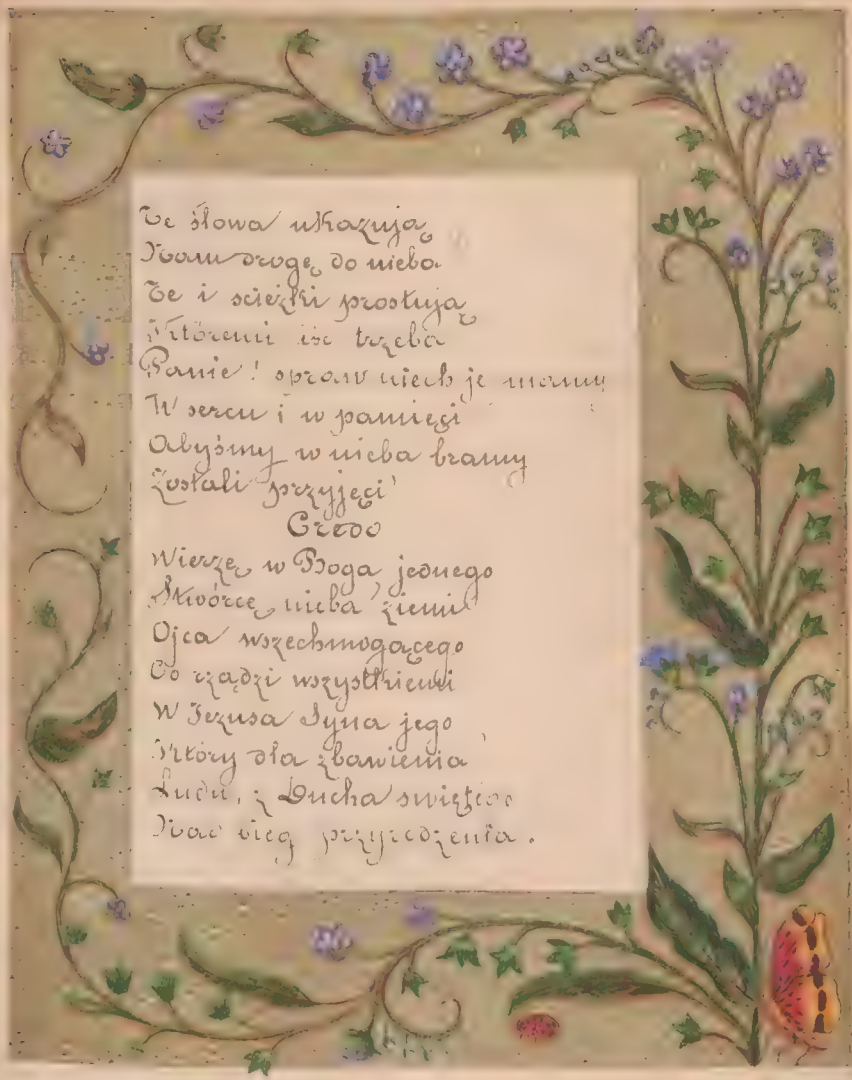 Te słowa ukazują
Nam drogę do nieba
Te i scieżki prostują
Któremi iść trzeba
Panie! spraw niech je mamy
W sercu i w pamięci
Abyśmy w nieba bramy
Zostali przyjęci
Credo
Wierzę w Boga jednego
Stwórcę nieba ziemi
Ojca wszechmogącego
Co rządzi wszystkiemi
W Jezusa Syna jego
Który dla zbawienia
Ludu, z Ducha swiętego
Nad bieg przyrodzenia.